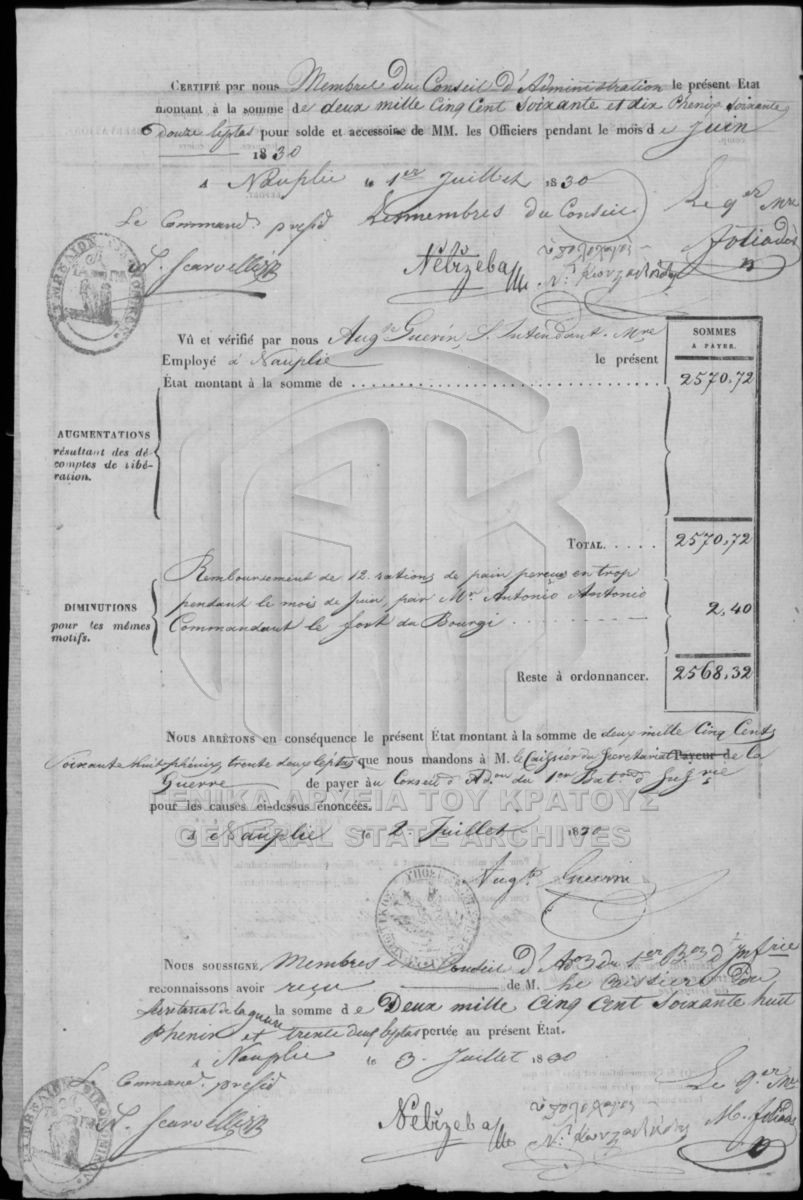 CERTIFIÉ par nous Membres du Conseil d'Administration le présent Etat
montant à la somme de deux mille Cinq Cent Soixante et dix Phenix Soixante
douze leptas pour solde et accessoire de MM. les Officiers pendant le mois de Juin
1830
A Nauplie le 1er Juillet 1830
Le Command. presid Les membres du Conseil Le qer Mre
ὑπολοχαγος
SOMMES
A PAYER.
Vû et vérifié par nous Augte Guerin, S. Intendant. Mre
Employé à Nauplie le présent
État montant à la somme de 2570,72
AUGMENTATIONS
résultant des dé-
comptes de libé-
ration.
TOTAL. 2570,72
DIMINUTIONS
pour les mêmes
motifs.
Remboursement de 12 rations de pain perçues en trop
pendant le mois de Juin, par Mr Antonio Antonio
Commandant le fort du Bourgi 2,40
Reste à ordonnancer. 2568,32
NOUS ARRÊTONS en conséquence le présent État montant à la somme de deux mille Cinq Cent
Soixante huit phénix trente deux leptas que nous mandons à M. le Caissier du Secretariat Payeur de la
Guerre de payer au Conseil d'Adon du 1er Baton d'Infrie
pour les causes ci-dessus énoncées.
ΓΕΝΙΚΑ ΑΡΧΕΙΑ ΤΟΥ ΚΡΑΤΟΥΣ
GENERAL STATE ARCHIVES
A Nauplie le 2 Juillet 1830
Augte Guerin
NOUS SOUSSIGNÉ, Membres du Conseil d'Aon du 1er Bon d'Infrie
reconnaissons avoir reçu de M. Le Caissier du
Secretariat de la guerre la somme de Deux mille Cinq Cent Soixante huit
Phenix et trente deux leptas portée au présent État.
A Nauplie le 3 Juillet 1830
Le Command. presid Le qer Mre
ὑπολοχαγος